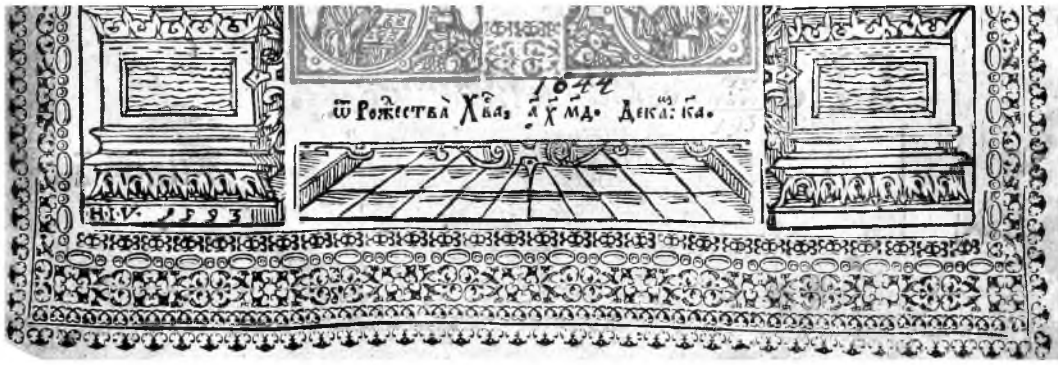 1644
ѿ Рожества̀ Хв҃а, ҂а х҃ м҃д. Декаⷨ: к҃а.
H.I.V. 1593